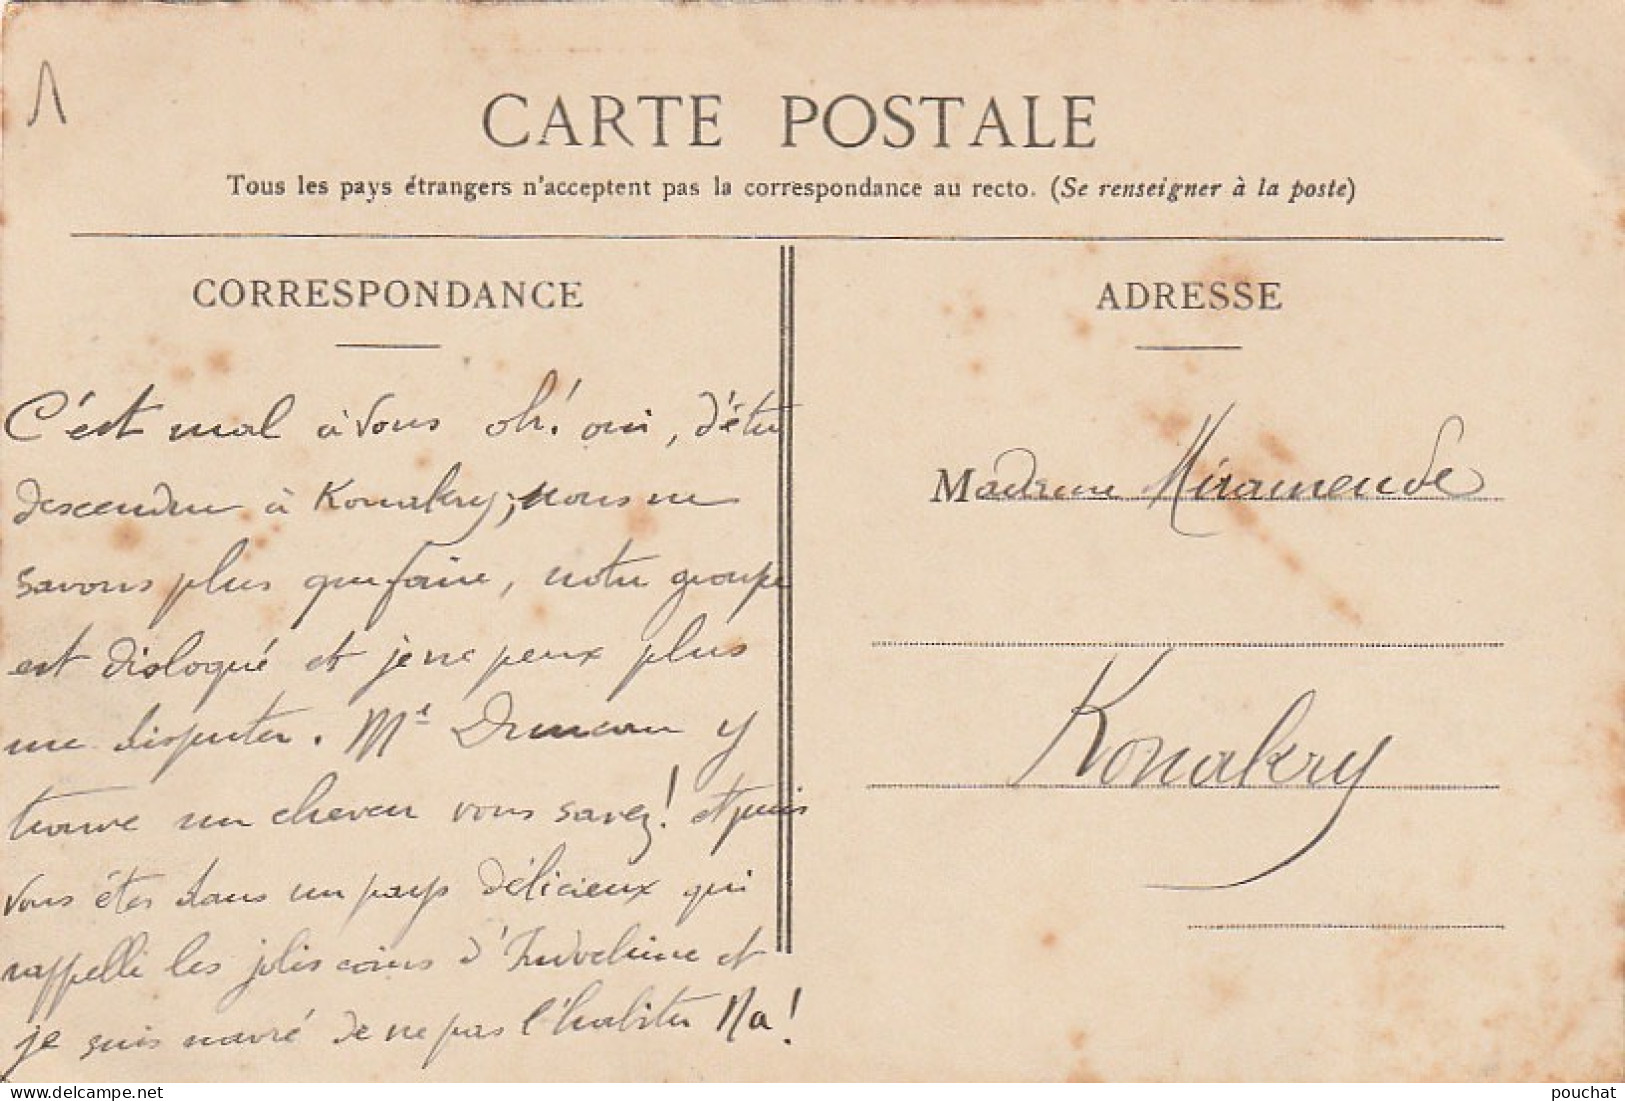 CARTE POSTALE
Tous les pays étrangers n'acceptent pas la correspondance au recto. (Se renseigner à la poste)
CORRESPONDANCE
C'est mal à vous oh! oui, d'être
descendue à Konakry; nous ne
savons plus que faire, notre groupe
est disloqué et je ne peux plus
me disputer. Mr Duncan y
trouve un cheveu vous savez! et puis
vous êtes dans un pays délicieux qui
rappelle les jolis coins d'Indochine et
je suis navré de ne pas l'habiter Na!
ADRESSE
Madame Miramende
Konakry
pouchat